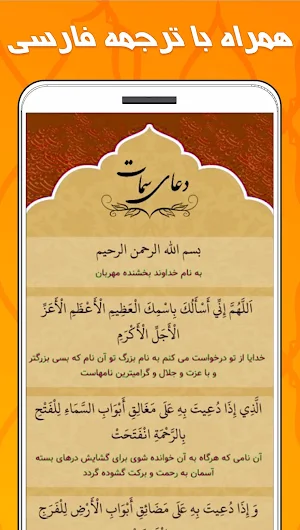 همراه با ترجمه فارسی
دعای سمات
بسم الله الرحمن الرحیم
به نام خداوند بخشنده مهربان
اَللَّهُمَّ إِنِّي أَسْأَلُكَ بِاسْمِكَ الْعَظِيمِ الْأَعْظَمِ الْأَعَزِّ
الْأَجَلِّ الْأَكْرَمِ
خدایا از تو درخواست می کنم به نام بزرگ تو آن نام که بسی بزرگتر
و با عزت و جلال و گرامیترین نامهاست
الَّذِي إِذَا دُعِيتَ بِهِ عَلَى مَغَالِقِ أَبْوَابِ السَّمَاءِ لِلْفَتْحِ
بِالرَّحْمَةِ انْفَتَحَتْ
آن نامی که هرگاه به آن خوانده شوی برای گشایش درهای بسته
آسمان به رحمت و برکت گشوده گردد
وَ إِذَا دُعِيتَ بِهِ عَلَى مَضَائِقِ أَبْوَابِ الْأَرْضِ لِلْفَرَجِ